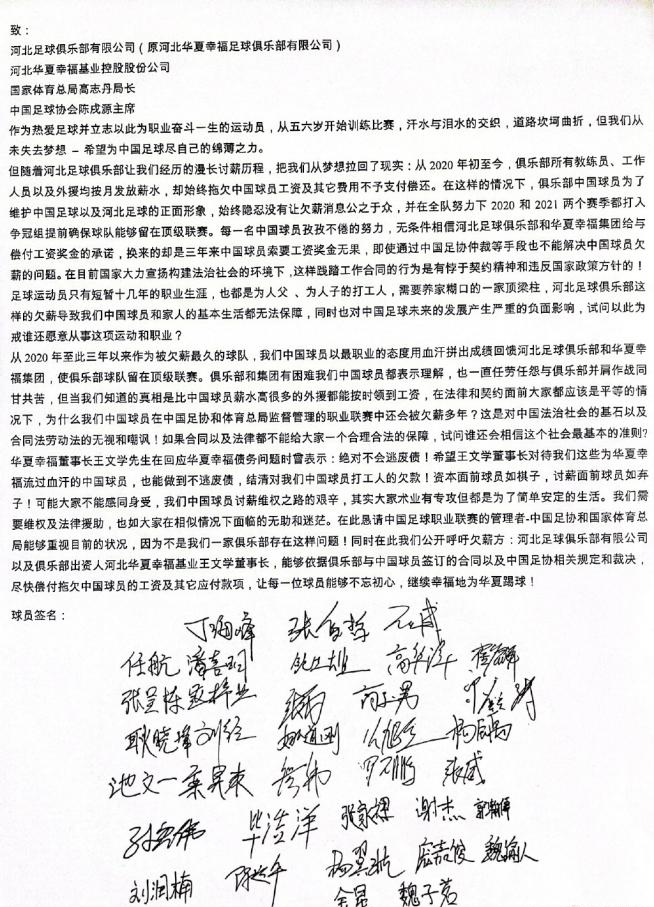 致：
河北足球俱乐部有限公司（原河北华夏幸福足球俱乐部有限公司）
河北华夏幸福基业控股股份公司
国家体育总局高志丹局长
中国足球协会陈戌源主席
作为热爱足球并立志以此为职业奋斗一生的运动员，从五六岁开始训练比赛，汗水与泪水的交织，道路坎坷曲折，但我们从
未失去梦想 – 希望为中国足球尽自己的绵薄之力。
但随着河北足球俱乐部让我们经历的漫长讨薪历程，把我们从梦想拉回了现实：从 2020 年初至今，俱乐部所有教练员、工作
人员以及外援均按月发放薪水，却始终拖欠中国球员工资及其它费用不予支付偿还。在这样的情况下，俱乐部中国球员为了
维护中国足球以及河北足球的正面形象，始终隐忍没有让欠薪消息公之于众，并在全队努力下 2020 和 2021 两个赛季都打入
争冠组提前确保球队能够留在顶级联赛。每一名中国球员孜孜不倦的努力，无条件相信河北足球俱乐部和华夏幸福集团给与
偿付工资奖金的承诺，换来的却是三年来中国球员索要工资奖金无果，即使通过中国足协仲裁等手段也不能解决中国球员欠
薪的问题。在目前国家大力宣扬构建法治社会的环境下，这样践踏工作合同的行为是有悖于契约精神和违反国家政策方针的！
足球运动员只有短暂十几年的职业生涯，也都是为人父 、为人子的打工人，需要养家糊口的一家顶梁柱，河北足球俱乐部这
样的欠薪导致我们中国球员和家人的基本生活都无法保障，同时也对中国足球未来的发展产生严重的负面影响，试问以此为
戒谁还愿意从事这项运动和职业？
从 2020 年至此三年以来作为被欠薪最久的球队，我们中国球员以最职业的态度用血汗拼出成绩回馈河北足球俱乐部和华夏幸
福集团，使俱乐部球队留在顶级联赛。俱乐部和集团有困难我们中国球员都表示理解，也一直任劳任怨与俱乐部并肩作战同
甘共苦，但当我们知道的真相是比中国球员薪水高很多的外援都能按时领到工资，在法律和契约面前大家都应该是平等的情
况下，为什么我们中国球员在中国足协和体育总局监督管理的职业联赛中还会被欠薪多年？这是对中国法治社会的基石以及
合同法劳动法的无视和嘲讽！如果合同以及法律都不能给大家一个合理合法的保障，试问谁还会相信这个社会最基本的准则?
华夏幸福董事长王文学先生在回应华夏幸福债务问题时曾表示：绝对不会逃废债！希望王文学董事长对待我们这些为华夏幸
福流过血汗的中国球员，也能做到不逃废债，结清对我们中国球员打工人的欠款！资本面前球员如棋子，讨薪面前球员如弃
子！可能大家不能感同身受，我们中国球员讨薪维权之路的艰辛，其实大家术业有专攻但都是为了简单安定的生活。我们需
要维权及法律援助，也如大家在相似情况下面临的无助和迷茫。在此恳请中国足球职业联赛的管理者-中国足协和国家体育总
局能够重视目前的状况，因为不是我们一家俱乐部存在这样问题！同时在此我们公开呼吁欠薪方：河北足球俱乐部有限公司
以及俱乐部出资人河北华夏幸福基业王文学董事长，能够依据俱乐部与中国球员签订的合同以及中国足协相关规定和裁决，
尽快偿付拖欠中国球员的工资及其它应付款项，让每一位球员能够不忘初心，继续幸福地为华夏踢球！
球员签名：
丁海峰
任航 潘喜明 高华泽
张呈栋
耿晓峰 刘经
池文一 罗石鹏 张威
毕浩洋 张家棵 谢杰
刘润楠 魏子茗